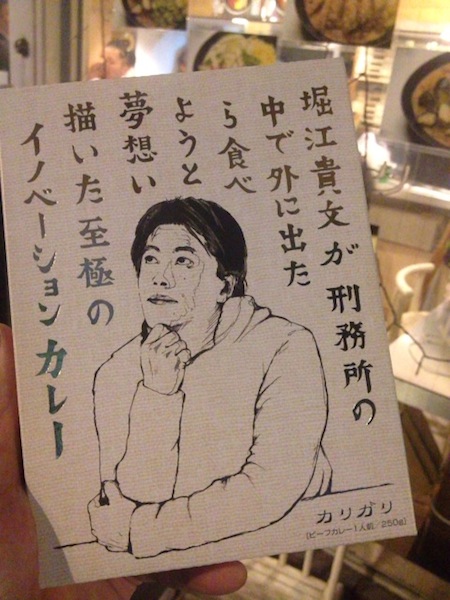 堀江貴文が刑務所の
中で外に出た
ら食べ
ようと
夢想い
描いた至極の
イノベーションカレー
カリガリ
[ビーフカレー1人前/250g]